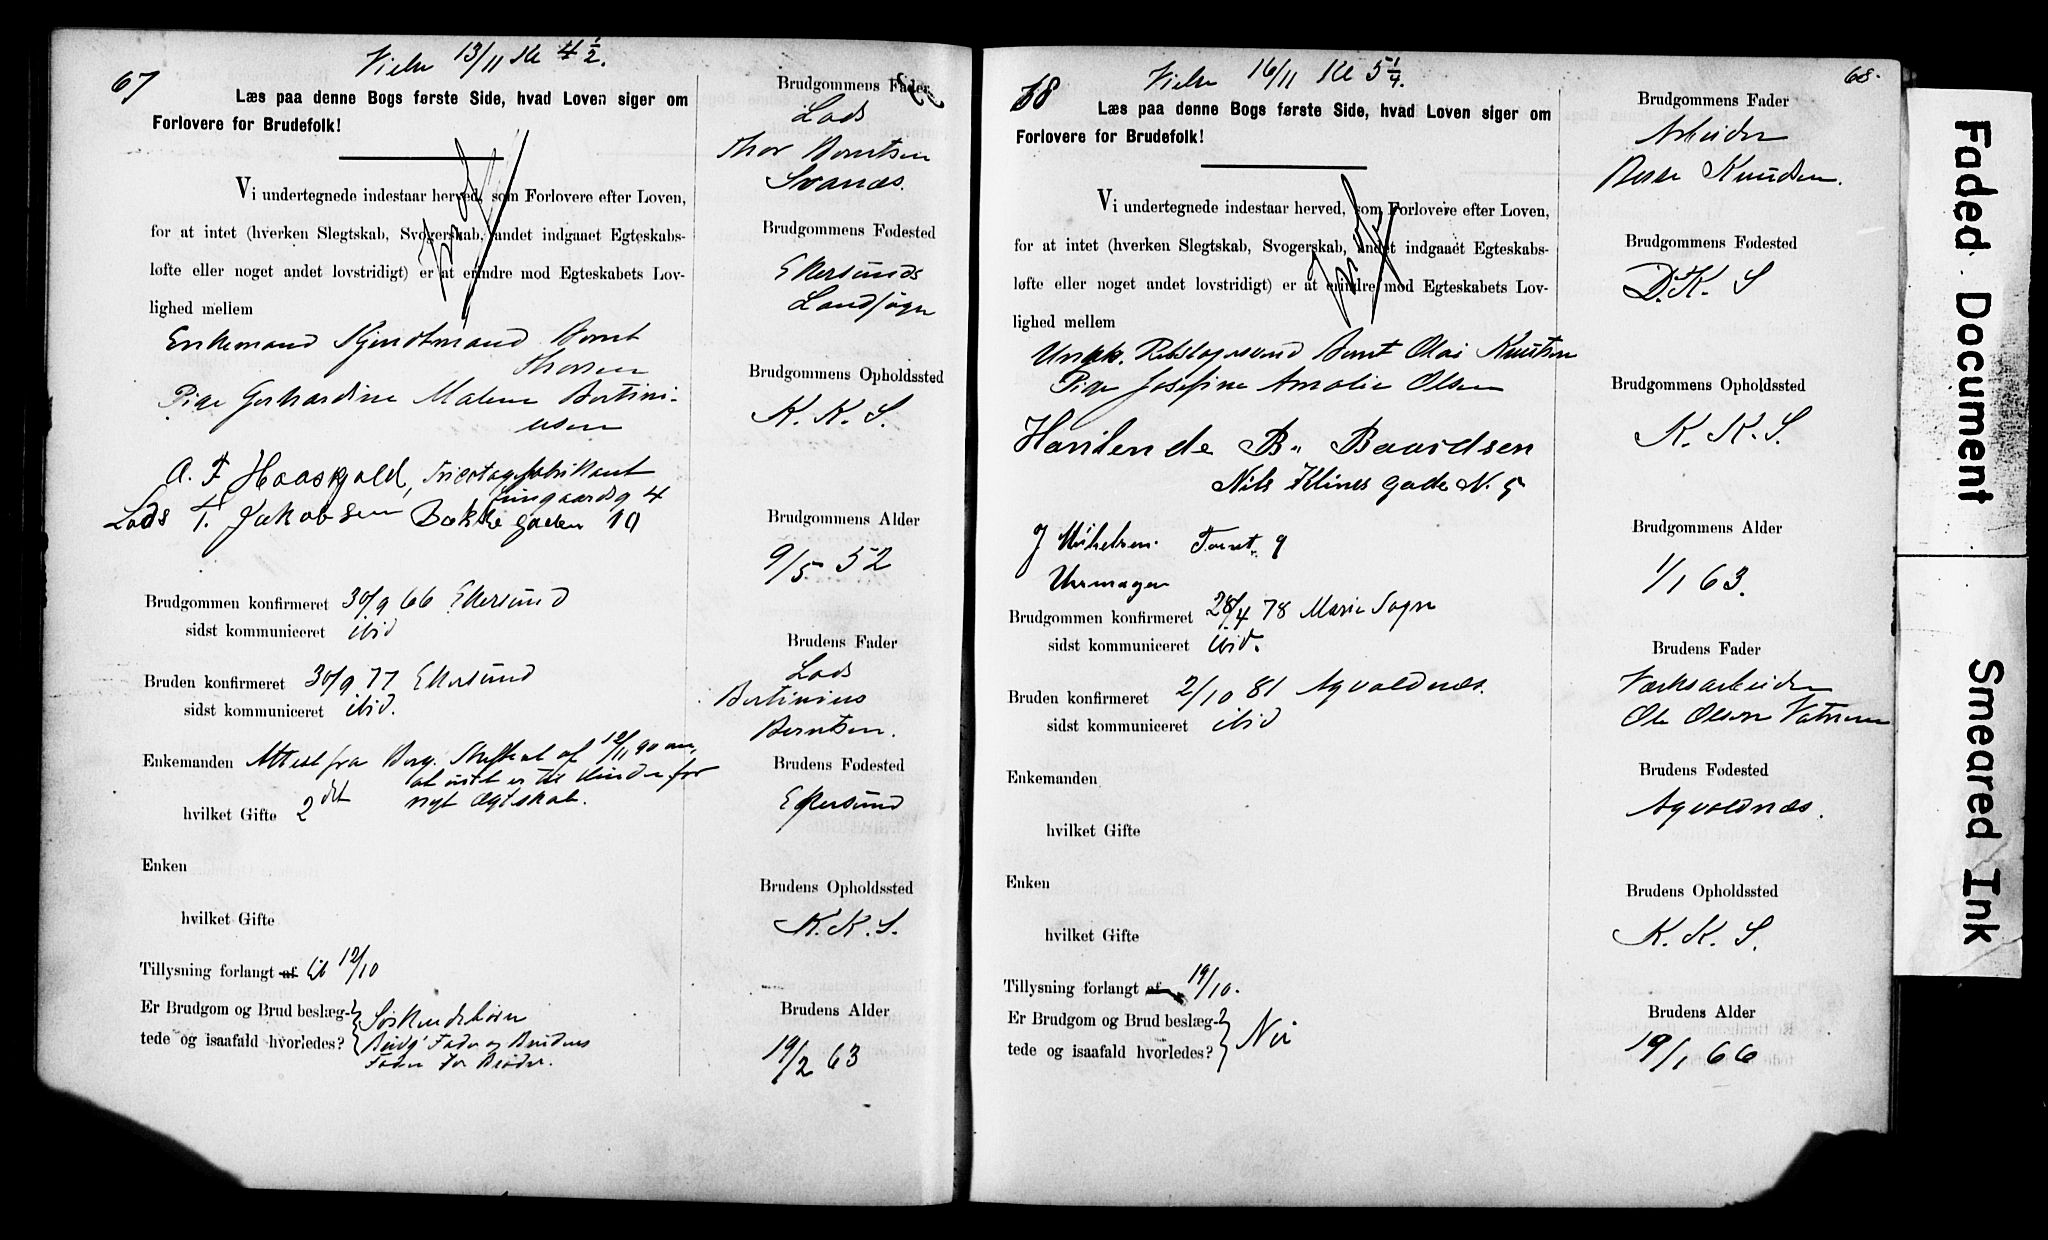 67
Vielse 13/11 Kl 4 1/2.
Læs paa denne Bogs første Side, hvad Loven siger om
Forlovere for Brudefolk!
Vi undertegnede indestaar herved, som Forlovere efter Loven,
for at intet (hverken Slegtskab, Svogerskab, andet indgaaet Egteskabs-
løfte eller noget andet lovstridigt) er at erindre mod Egteskabets Lov-
lighed mellem
Enkemand Kjendtmand Bernt
Thorsen
Pige Gerhardine Malene Bertini-
usen
A. F Haaskjold, Tricotagefabrikant
Lungaardsg 4
Lods T. Jakobsen Bakke gaden 10
Brudgommen konfirmeret 30/9 66 Ekersund
sidst kommuniceret ibid
Bruden konfirmeret 30/9 77 Ekersund
sidst kommuniceret ibid.
Enkemanden Attest fra Berg. Skifteret af 12/11 90 om,
at intet er til Hinder for
hvilket Gifte 2det nyt Ægteskab.
Enken
hvilket Gifte
Tillysning forlangt af til 12/10
Er Brudgom og Brud beslæg-
tede og isaafald hvorledes?
Søskendebørn
Brudg' Fader og Brudens
Fader er Brødre.
Brudgommens Fader
Lods
Thor Berntsen
Svanæs.
Brudgommens Fødested
Ekersunds
Landsogn
Brudgommens Opholdssted
K. K. S.
Brudgommens Alder
9/5 52
Brudens Fader
Lods
Bertinius
Berntsen.
Brudens Fødested
Ekersund
Brudens Opholdssted
K. K. S.
Brudens Alder
19/2 63
68
Vielse 16/11 Kl 5 1/4.
68.
Læs paa denne Bogs første Side, hvad Loven siger om
Forlovere for Brudefolk!
Vi undertegnede indestaar herved, som Forlovere efter Loven,
for at intet (hverken Slegtskab, Svogerskab, andet indgaaet Egteskabs-
løfte eller noget andet lovstridigt) er at erindre mod Egteskabets Lov-
lighed mellem
Ungk. Rebslagersvend Bernt Olai Knutsen
Pige Josefine Amalie Olsen
Handlende B. Baardsen
Nils Klines gade N. 5
J Mikelsen. Torvet. 9
Urmager
Brudgommen konfirmeret 28/4 78 Marie Sogn
sidst kommuniceret ibid.
Bruden konfirmeret 2/10 81 Agvaldnæs.
sidst kommuniceret ibid
Enkemanden
hvilket Gifte
Enken
hvilket Gifte
Tillysning forlangt af 19/10.
Er Brudgom og Brud beslæg-
tede og isaafald hvorledes?
Nei
Brudgommens Fader
Arbeider
Knudsen.
Brudgommens Fødested
D. K. S
Brudgommens Opholdssted
K. K. S.
Brudgommens Alder
1/1 63.
Brudens Fader
Værksarbeider
Ole Olsen
Brudens Fødested
Agvaldnæs.
Brudens Opholdssted
K. K. S.
Brudens Alder
19/1 66
Faded Document
Smeared Ink